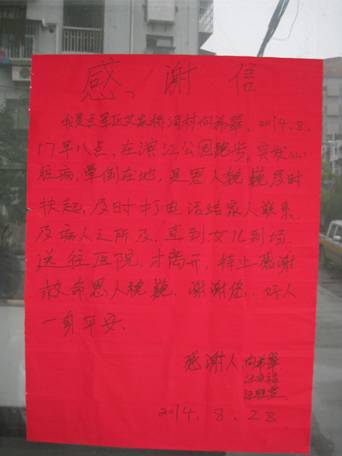 感谢信
2014.8.
17早八点，在滨江公园跑步，突发心
脏病，晕倒在地，是恩人魏巍及时
扶起，及时打电话给家人联系，
及病人之所及，直到女儿到场，
送往医院，才离开，特此感谢
救命恩人魏巍，谢谢您，好人
一身平安。
感谢人
2014.8.28